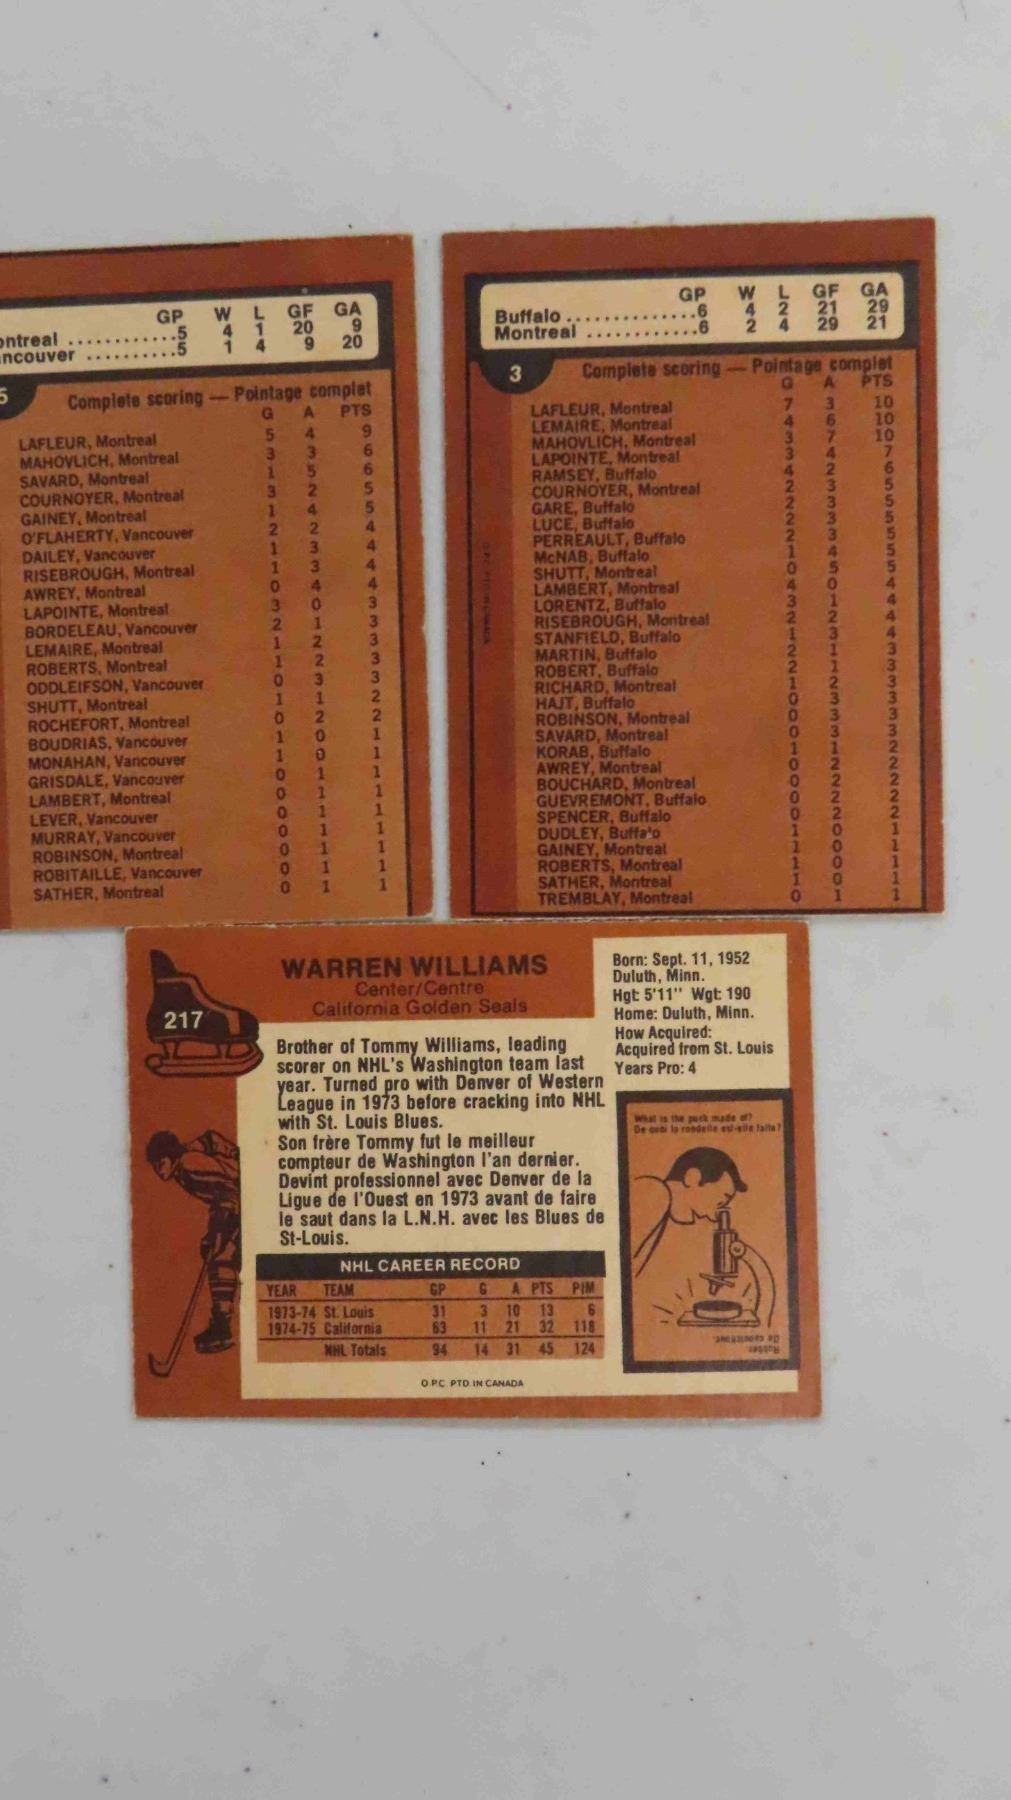 GP W L GF GA
ontreal ............5 4 1 20 9
ncouver ..........5 1 4 9 20
5
Complete scoring — Pointage complet
G A PTS
LAFLEUR, Montreal 5 4 9
MAHOVLICH, Montreal 3 3 6
SAVARD, Montreal 1 5 6
COURNOYER, Montreal 3 2 5
GAINEY, Montreal 1 4 5
O'FLAHERTY, Vancouver 2 2 4
DAILEY, Vancouver 1 3 4
RISEBROUGH, Montreal 1 3 4
AWREY, Montreal 0 4 4
LAPOINTE, Montreal 3 0 3
BORDELEAU, Vancouver 2 1 3
LEMAIRE, Montreal 1 2 3
ROBERTS, Montreal 1 2 3
ODDLEIFSON, Vancouver 0 3 3
SHUTT, Montreal 1 1 2
ROCHEFORT, Montreal 0 2 2
BOUDRIAS, Vancouver 1 0 1
MONAHAN, Vancouver 1 0 1
GRISDALE, Vancouver 0 1 1
LAMBERT, Montreal 0 1 1
LEVER, Vancouver 0 1 1
MURRAY, Vancouver 0 1 1
ROBINSON, Montreal 0 1 1
ROBITAILLE, Vancouver 0 1 1
SATHER, Montreal 0 1 1
GP W L GF GA
Buffalo ..............6 4 2 21 29
Montreal ............6 2 4 29 21
3
Complete scoring — Pointage complet
G A PTS
LAFLEUR, Montreal 7 3 10
LEMAIRE, Montreal 4 6 10
MAHOVLICH, Montreal 3 7 10
LAPOINTE, Montreal 3 4 7
RAMSEY, Buffalo 4 2 6
COURNOYER, Montreal 2 3 5
GARE, Buffalo 2 3 5
LUCE, Buffalo 2 3 5
PERREAULT, Buffalo 2 3 5
McNAB, Buffalo 1 4 5
SHUTT, Montreal 0 5 5
LAMBERT, Montreal 4 0 4
LORENTZ, Buffalo 3 1 4
RISEBROUGH, Montreal 2 2 4
STANFIELD, Buffalo 1 3 4
MARTIN, Buffalo 2 1 3
ROBERT, Buffalo 2 1 3
RICHARD, Montreal 1 2 3
HAJT, Buffalo 0 3 3
ROBINSON, Montreal 0 3 3
SAVARD, Montreal 0 3 3
KORAB, Buffalo 1 1 2
AWREY, Montreal 0 2 2
BOUCHARD, Montreal 0 2 2
GUEVREMONT, Buffalo 0 2 2
SPENCER, Buffalo 0 2 2
DUDLEY, Buffalo 1 0 1
GAINEY, Montreal 1 0 1
ROBERTS, Montreal 1 0 1
SATHER, Montreal 1 0 1
TREMBLAY, Montreal 0 1 1
217
WARREN WILLIAMS
Center/Centre
California Golden Seals
Brother of Tommy Williams, leading
scorer on NHL's Washington team last
year. Turned pro with Denver of Western
League in 1973 before cracking into NHL
with St. Louis Blues.
Son frère Tommy fut le meilleur
compteur de Washington l'an dernier.
Devint professionnel avec Denver de la
Ligue de l'Ouest en 1973 avant de faire
le saut dans la L.N.H. avec les Blues de
St-Louis.
NHL CAREER RECORD
YEAR TEAM GP G A PTS PIM
1973-74 St. Louis 31 3 10 13 6
1974-75 California 63 11 21 32 118
NHL Totals 94 14 31 45 124
O.P.C. PTD. IN CANADA
Born: Sept. 11, 1952
Duluth, Minn.
Hgt: 5'11" Wgt: 190
Home: Duluth, Minn.
How Acquired:
Acquired from St. Louis
Years Pro: 4
What is the puck made of?
De quoi la rondelle est-elle faite?
Rubber
De caoutchouc